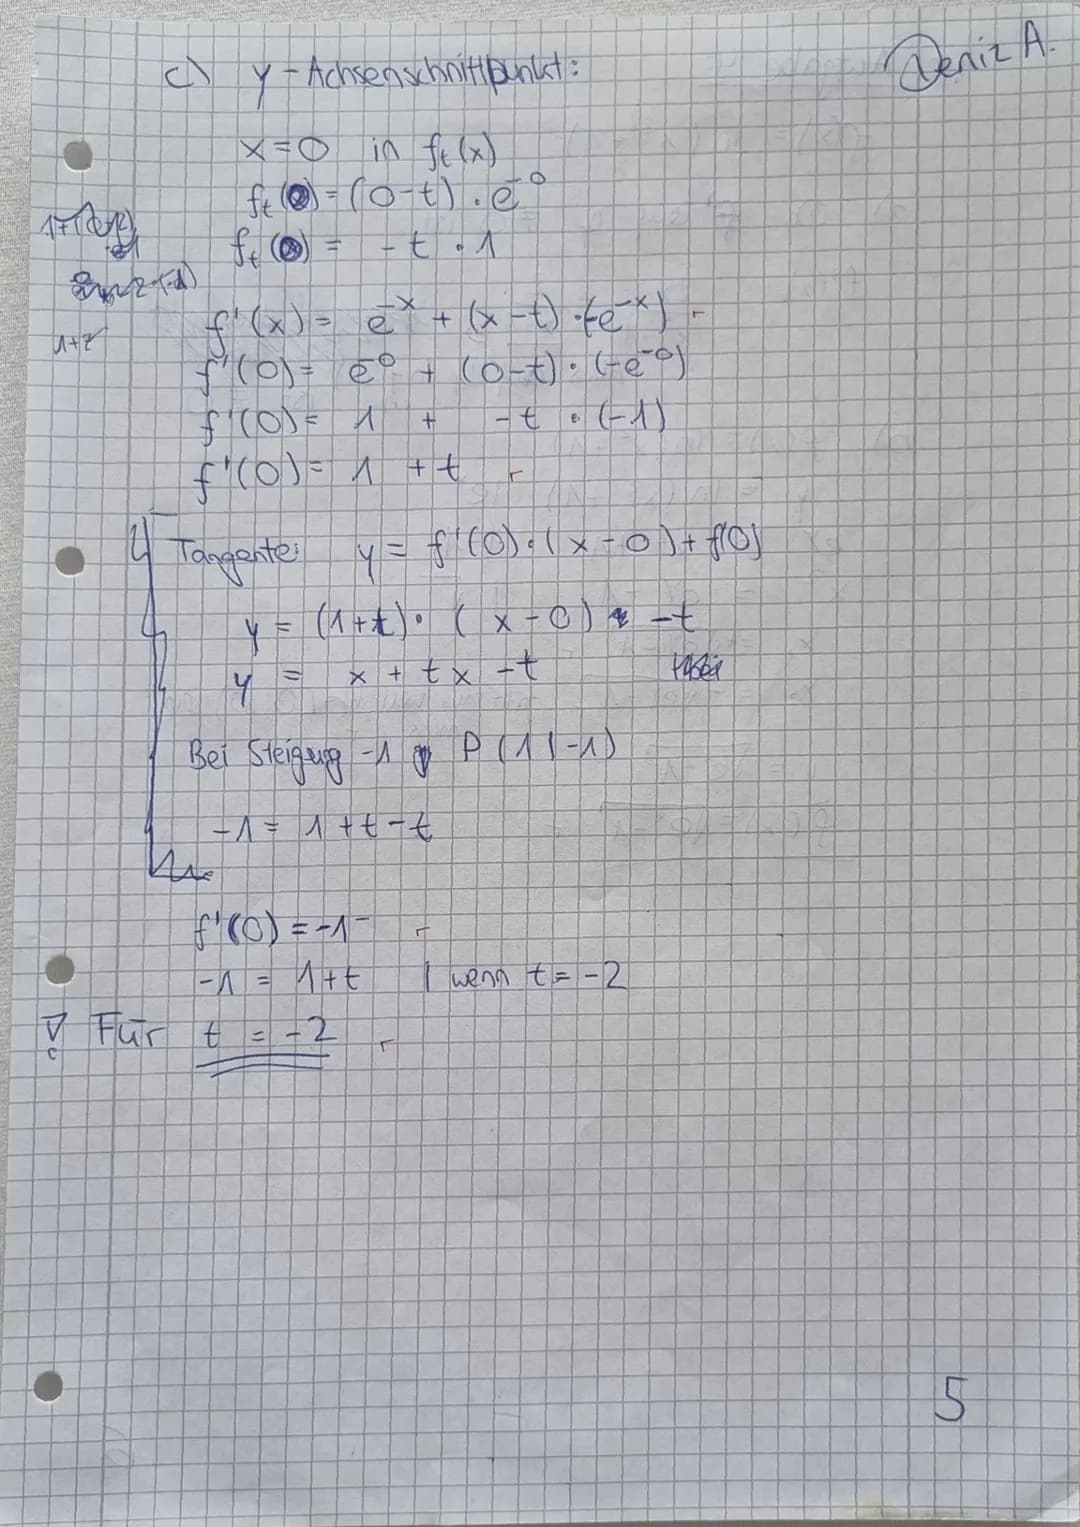 Deniz A.
c) y-Achsenschnittpunkt:
x=0 in fₜ(x)
fₜ(0)=(0-t)·e⁻⁰
fₜ(0)= -t·1
f'(x)= e⁻ˣ + (x-t)·(-e⁻ˣ)
1+2
f'(0)= e⁻⁰ + (0-t)·(-e⁻⁰)
f'(0)= 1 + -t·(-1)
f'(0)= 1 +t
Tangente: y = f'(0)·(x-0)+f(0)
y = (1+t)·(x-0) -t
y = x + tx -t
Bei Steigung -1 P(1|-1)
-1= 1+t-t
f'(0)=-1
-1 = 1+t | wenn t=-2
Für t = -2
5